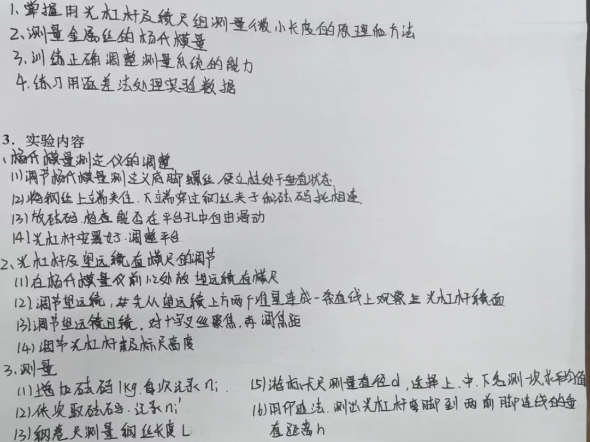 1、掌握用光杠杆及镜尺组测量微小长度的原理和方法
2、测量金属丝的杨氏模量
3、训练正确调整测量系统的能力
4、练习用逐差法处理实验数据
3. 实验内容
1、杨氏模量测定仪的调整
(1)调节杨氏模量测定仪底脚螺丝,使立柱处于垂直状态
(2)将钢丝上端夹住,下端穿过钢丝夹子和砝码托相连
(3)放砝码,检查能否在平台孔中自由滑动
(4)光杠杆安置好,调整平台
2、光杠杆及望远镜直横尺的调节
(1)在杨氏模量仪前1.2处放望远镜直横尺
(2)调节望远镜,首先从望远镜上方两个准星连成一条直线上观察至光杠杆镜面
(3)调节望远镜目镜,对十字叉丝聚焦,再调焦距
(4)调节光杠杆镜及标尺高度
3、测量
(1)增加砝码1kg,每次记录ni. (5)游标卡尺测量直径d,选择上、中、下各测一次求平均值
(2)依次取砝码,记录ni' (6)用印迹法,测出光杠杆后脚到两前脚连线的垂
(3)钢卷尺测量钢丝长度L 直距离h